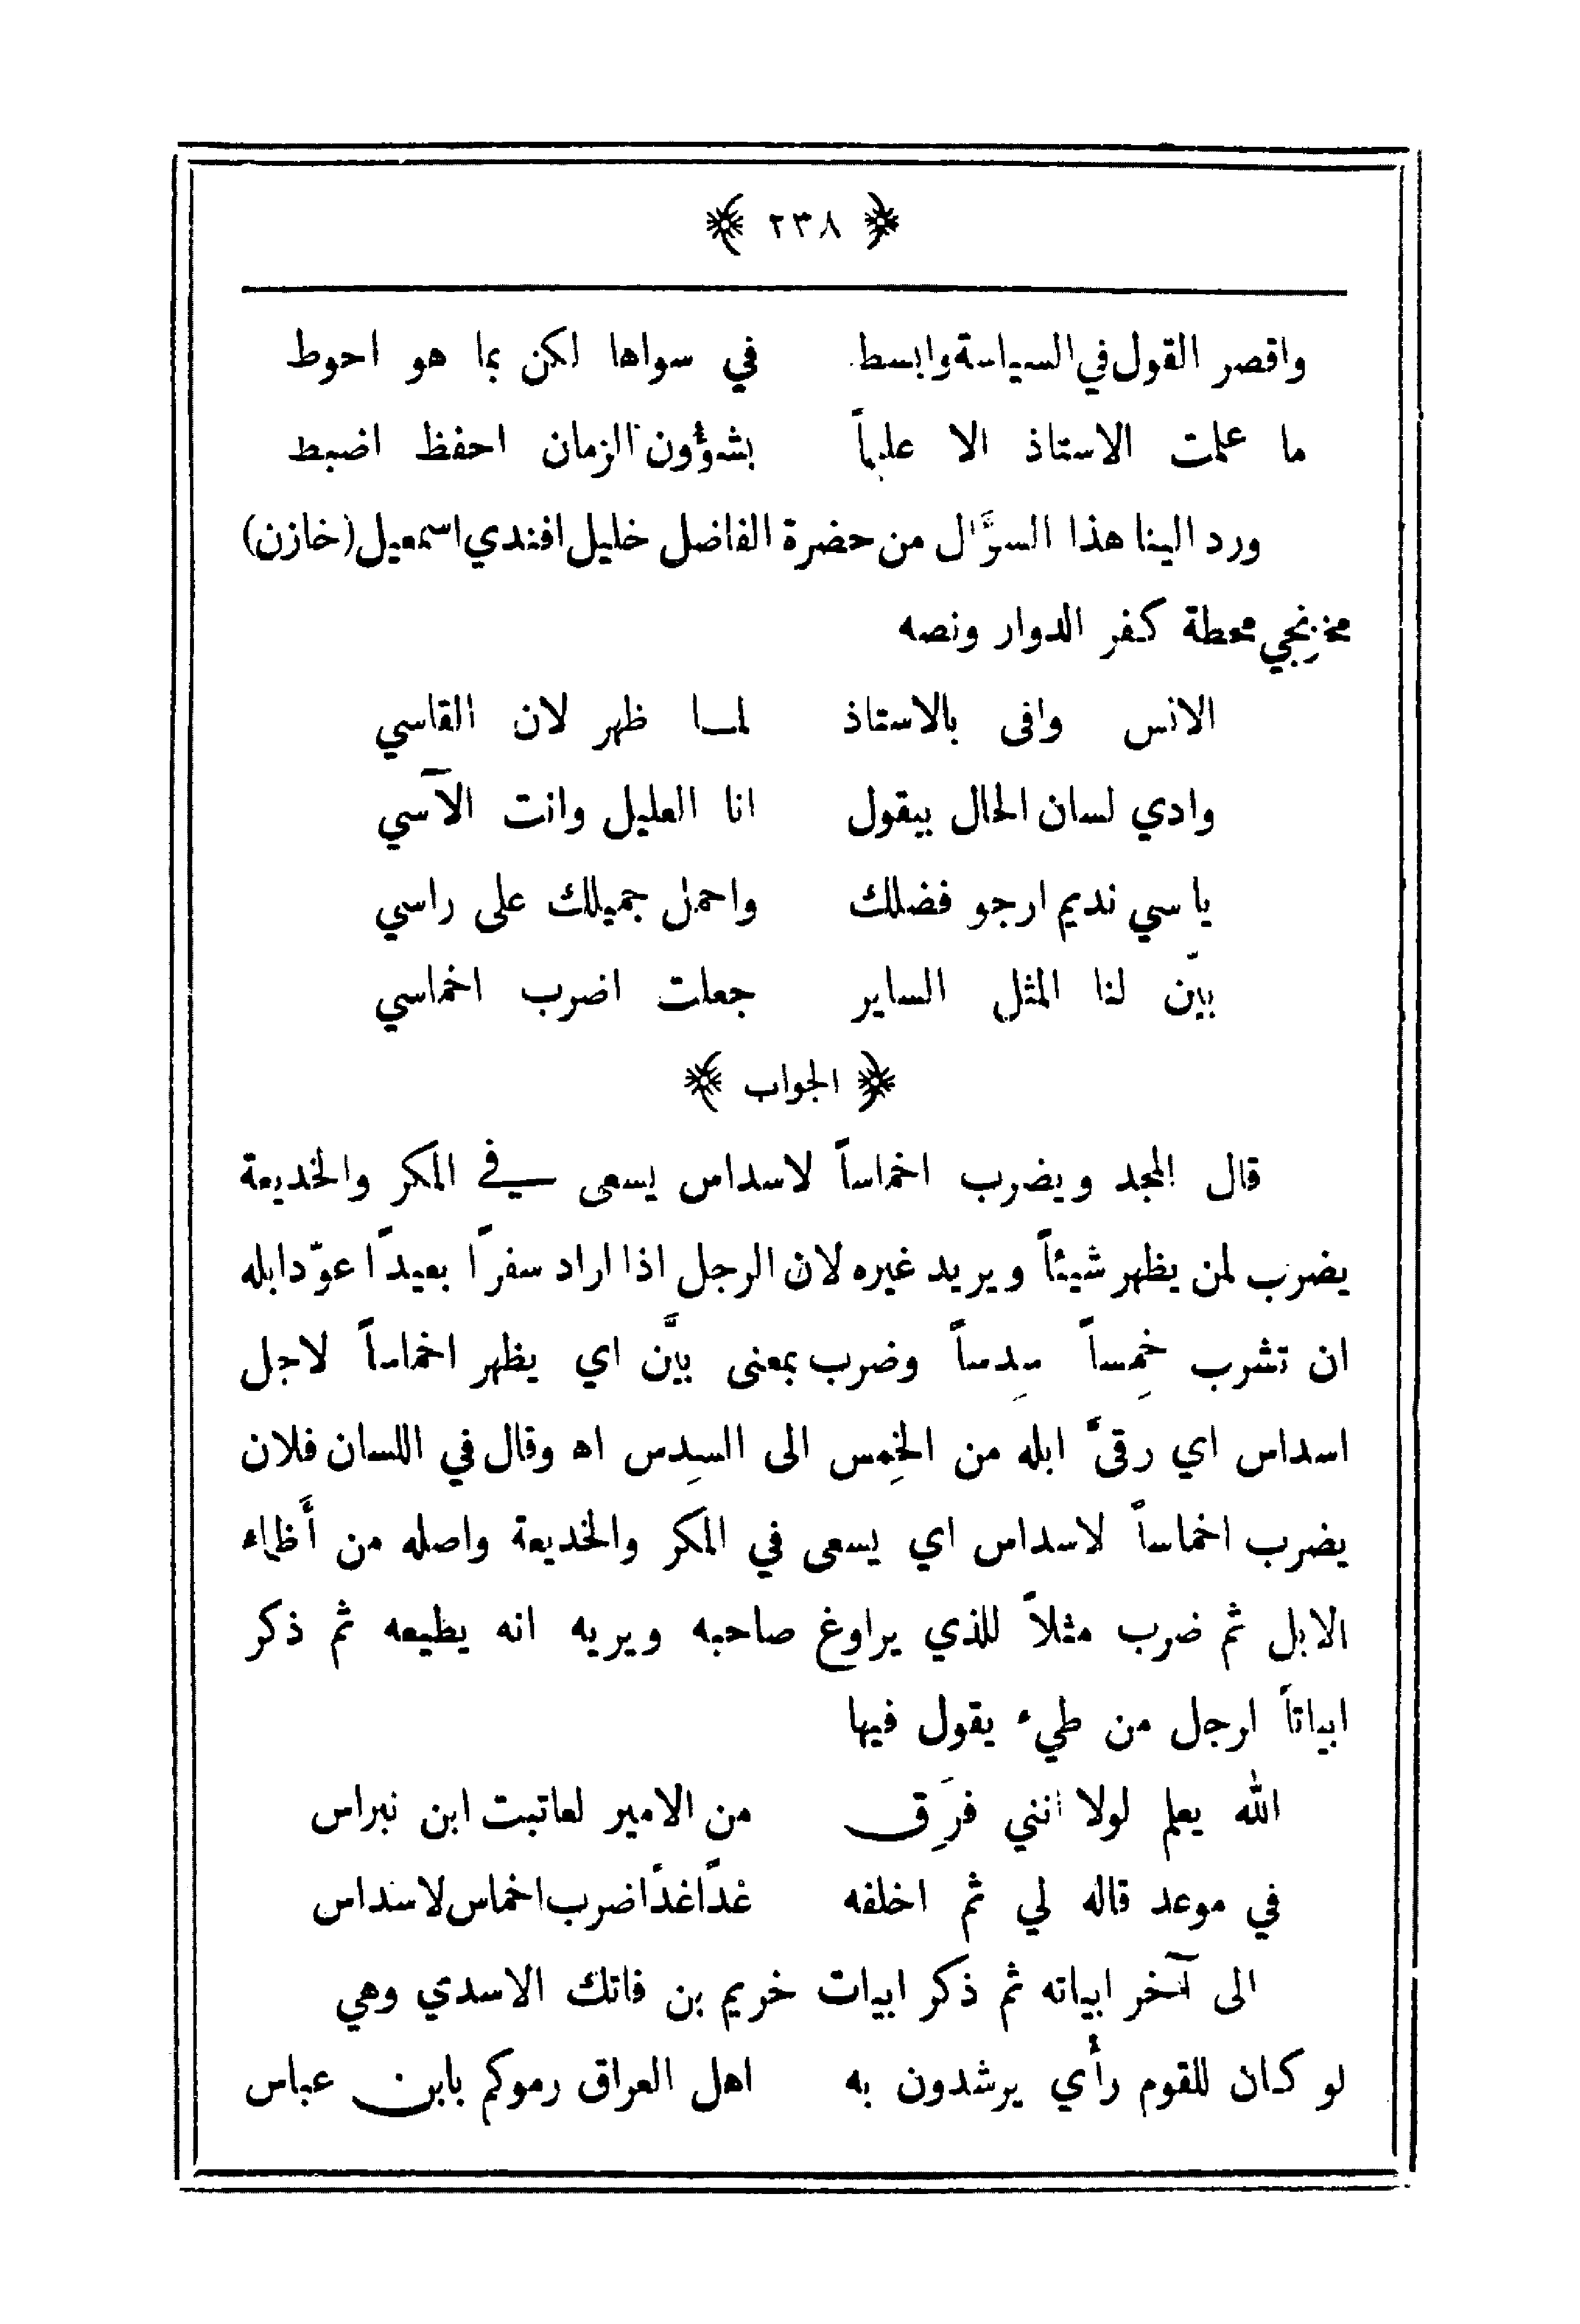 ﴿ ٢٣٨ ﴾
واقصر القول في السياسة وابسط في سواها لكن بما هو احوط
ما علمت الاستاذ الا عليماً بشؤون الزمان احفظ اضبط
ورد الينا هذا السؤَّال من حضرة الفاضل خليل افندي اسمعيل (خازن)
مخزنجي محطة كفر الدوار ونصه
الانس وافى بالاستاذ لمـا ظهر لان القاسي
وادي لسان الحال بيقول انا العليل وانت الآسي
يا سي نديم ارجو فضلك واحمل جميلك على راسي
بيّن لنا المثل الساير جعلت اضرب اخماسي
﴿ الجواب ﴾
قال المجد ويضرب اخماساً لاسداس يسعى في المكر والخديعة
يضرب لمن يظهر شيئاً ويريد غيره لان الرجل اذا اراد سفرًا بعيدًا عوّد ابله
ان تشرب خِمساً سِدساً وضرب بمعنى بيَّن اي يظهر اخماساً لاجل
اسداس اي رقىَّ ابله من الخِمس الى السِدس اه وقال في اللسان فلان
يضرب اخماساً لاسداس اي يسعى في المكر والخديعة واصله من أَظماء
الابل ثم ضرب مثلاً للذي يراوغ صاحبه ويريه انه يطيعه ثم ذكر
ابياتاً لرجل من طيء يقول فيها
الله يعلم لولا انني فَرِق من الامير لعاتبت ابن نبراس
في موعد قاله لي ثم اخلفه غدًا غدًا ضرب اخماس لاسداس
الى آخر ابياته ثم ذكر ابيات خريم بن فاتك الاسدي وهي
لو كان للقوم رأي يرشدون به اهل العراق رموكم بابن عباس